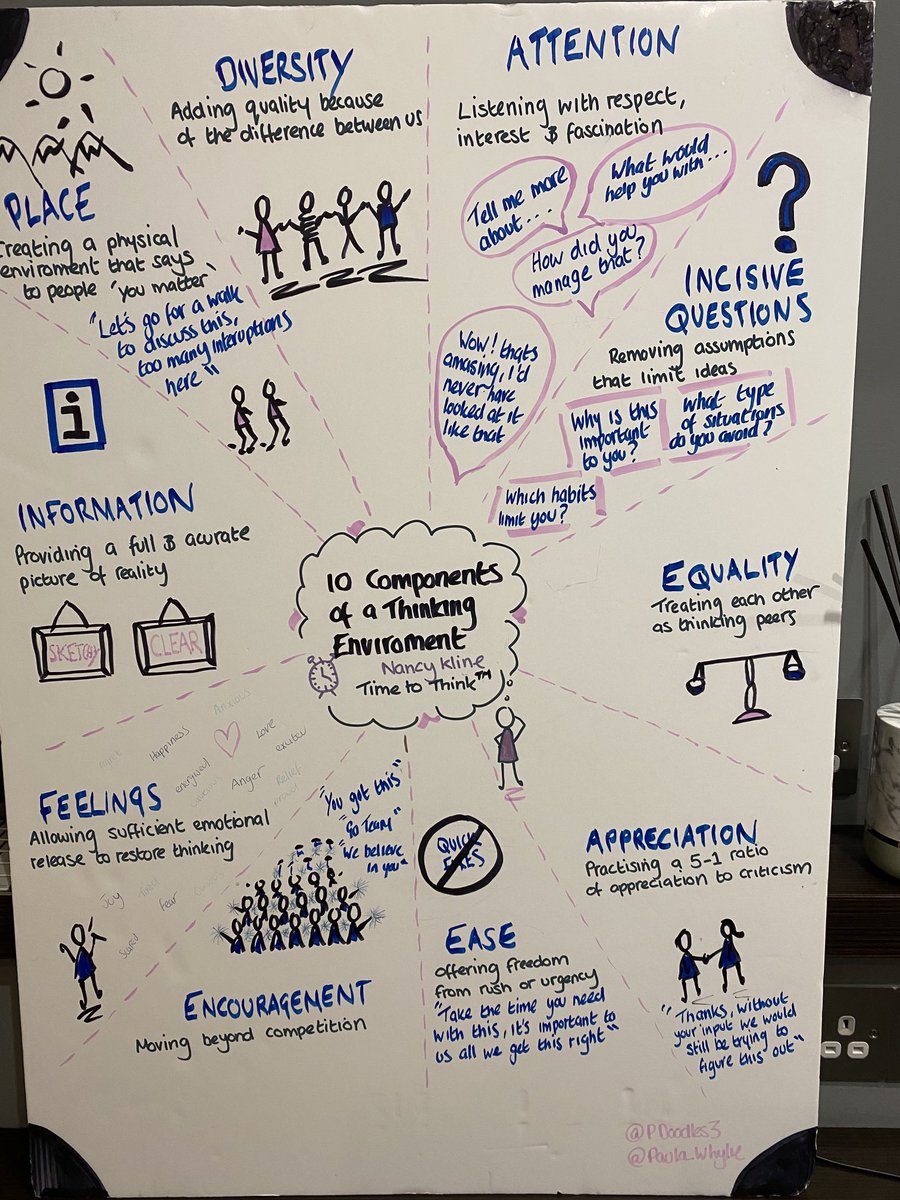 DIVERSITY
Adding quality because
of the difference between us
ATTENTION
Listening with respect,
interest & fascination
Tell me more
about....
What would...
help you with...
How did you
manage that?
Wow! thats
amazing, I'd
never have
looked at it
like that
INCISIVE
QUESTIONS
Removing assumptions
that limit ideas
Why is this
important
to you?
What type
of situations
do you avoid?
Which habits
limit you?
EQUALITY
Treating each other
as thinking peers
APPRECIATION
Practising a 5-1 ratio
of appreciation to criticism
"Thanks, without
your input we would
still be trying to
figure this out"
QUICK
FIXES
EASE
offering freedom
from rush or urgency
"Take the time you need
with this, it's important to
us all we get this right"
"You got this"
"Go Team"
"We believe
in you"
ENCOURAGEMENT
Moving beyond competition
Anxious
Happiness
Love
excited
energised
Anger
Relief
proud
FEELINGS
Allowing sufficient emotional
release to restore thinking
Joy
fear
Scared
INFORMATION
Providing a full & acurate
picture of reality
SKETCHY
CLEAR
PLACE
Creating a physical
enviroment that says
to people 'you matter'
"Let's go for a walk
to discuss this,
too many interuptions
here"
i
10 Components
of a Thinking
Enviroment
Nancy Kline
Time to Think™
@PDoodles3
@Paula_Whylie